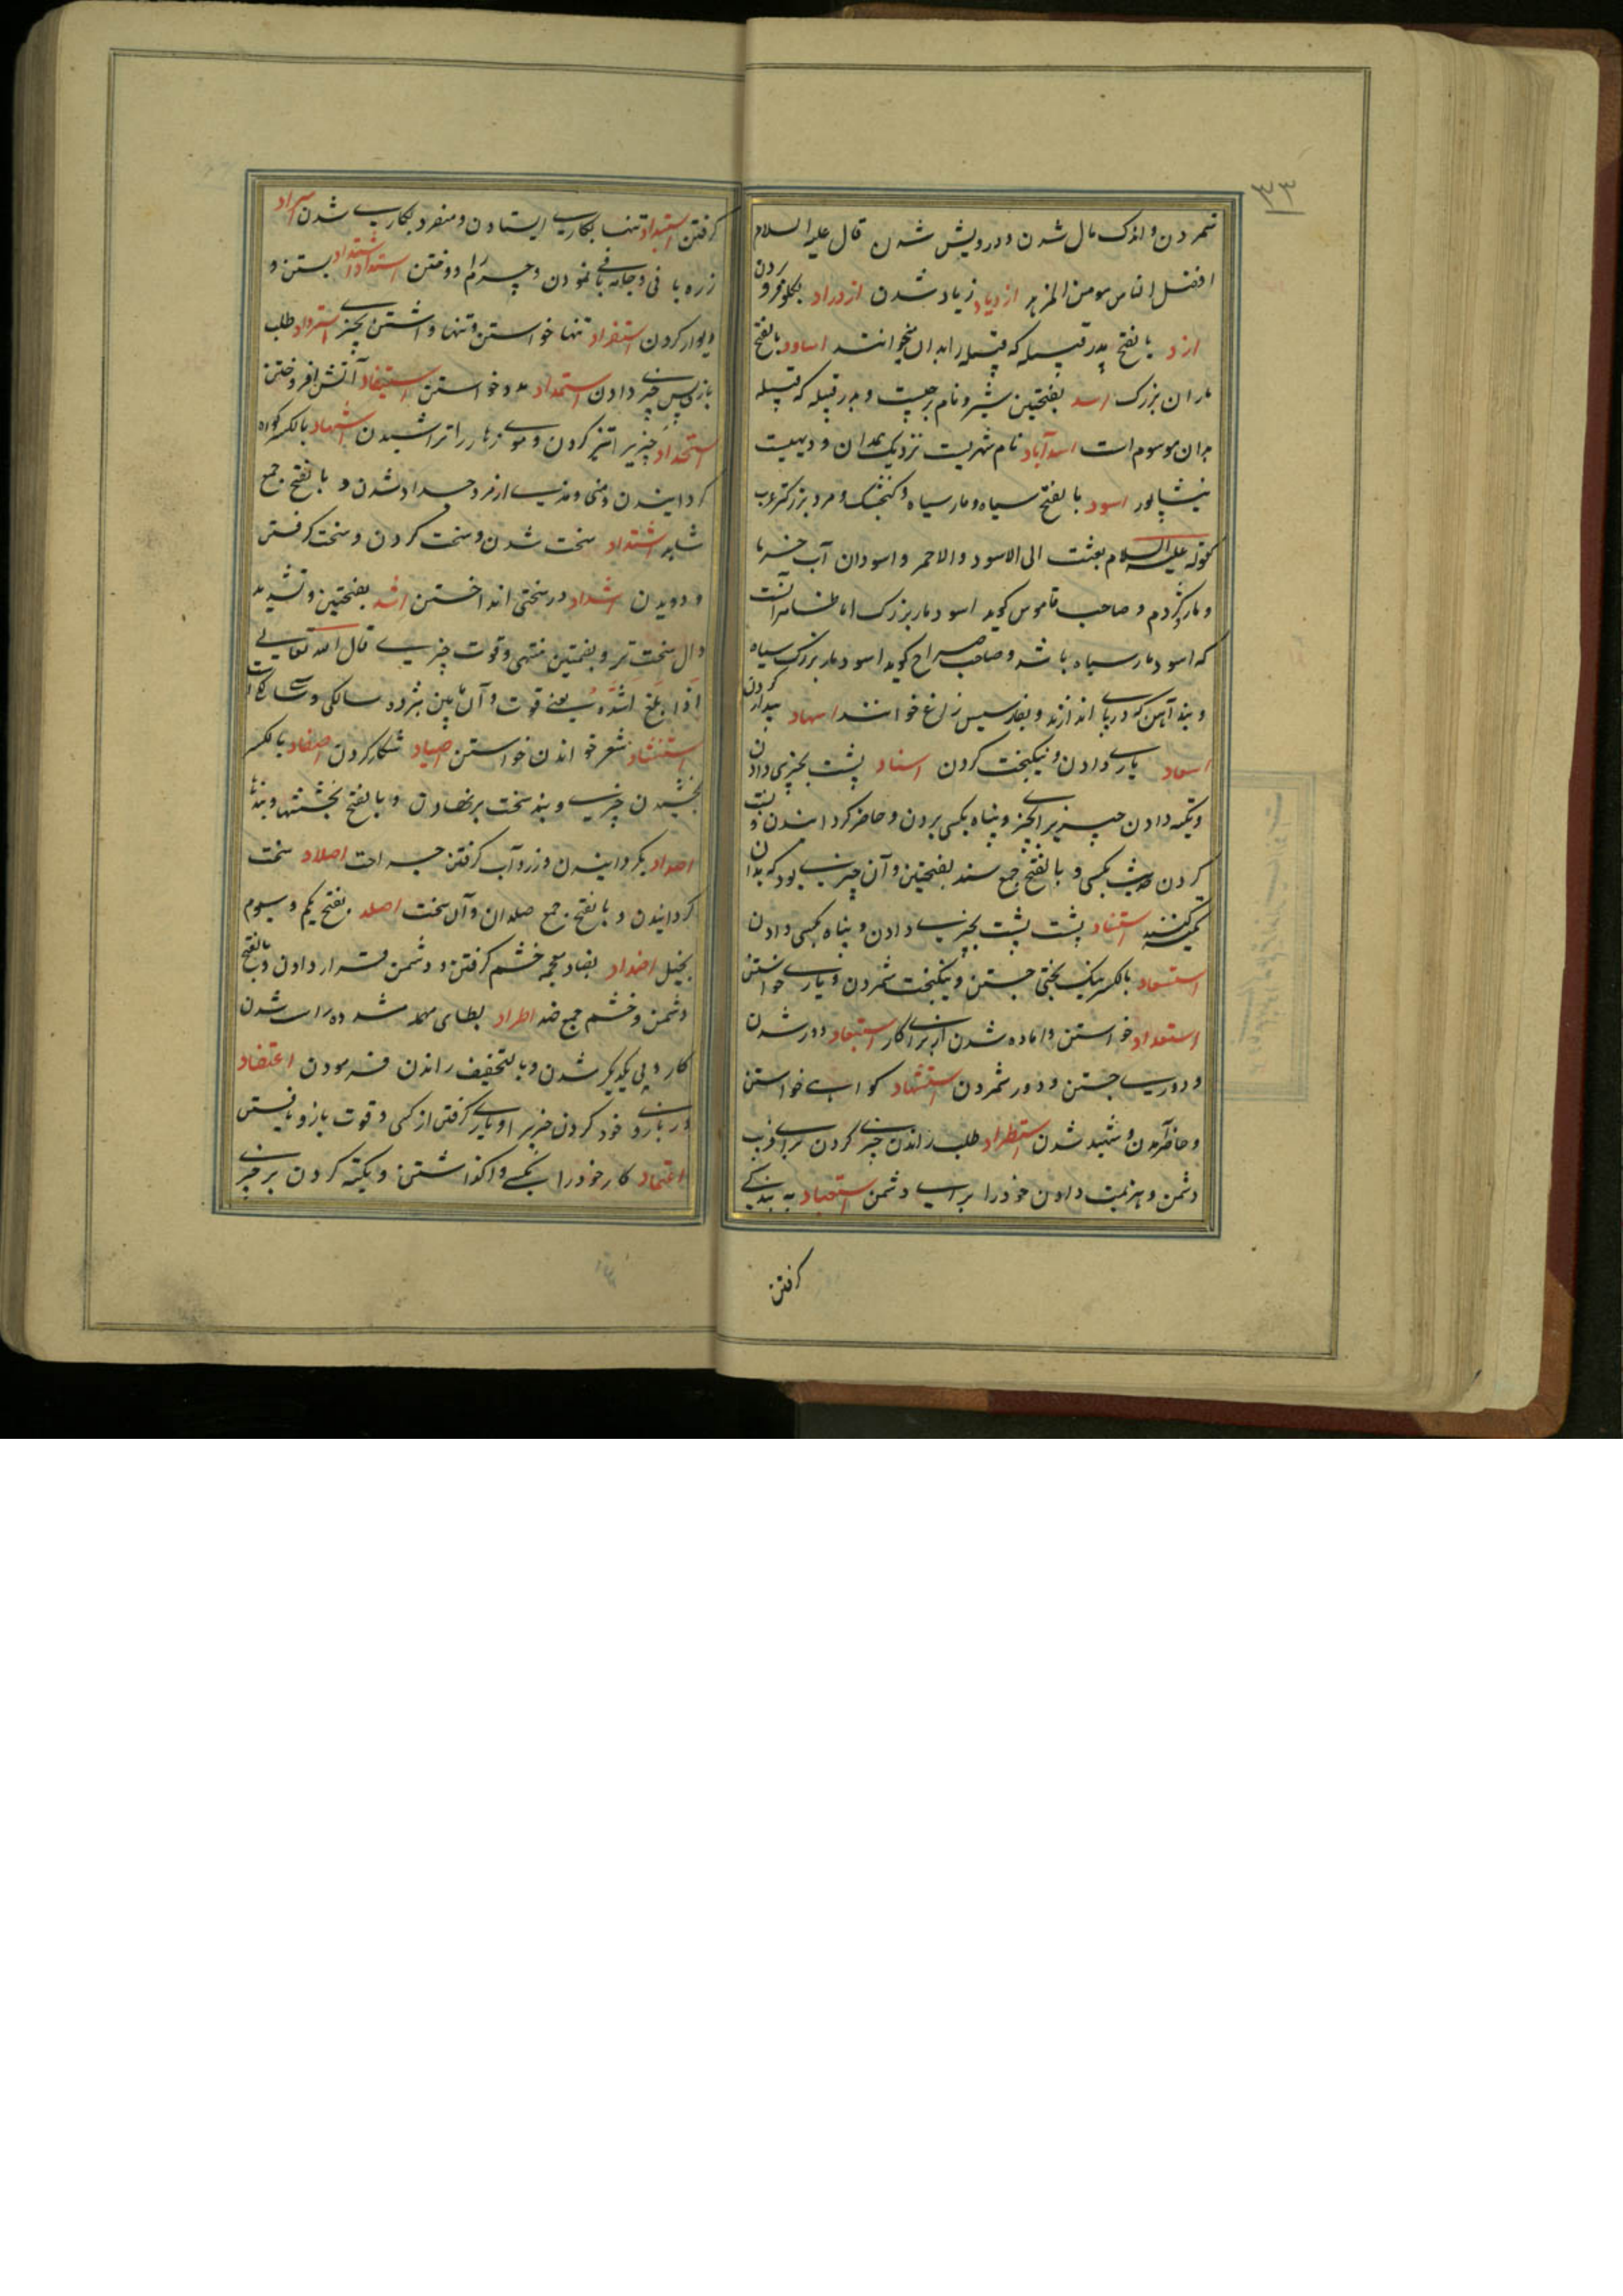 ۳۳
شمردن و اندک مال شدن و درویش شدن قال علیه السلام
افضل الناس مومن المزهد ازدیاد زیاد شدن ازدراد بگلو فروبردن
ازد بالفتح پدر قبیله که قبیله را بدان میخوانند اساود بالفتح
ماران بزرگ اسد بفتحتین شیر و نام برجیست و پدر قبیله که قبیله
بدان موسوم است اسدآباد نام شهریست نزدیک همدان و دیهیست
نیشاپور اسود بالفتح سیاه و مار سیاه و کنجشک و مرد بزرکتر عرب
کقوله علیه السلام بعثت الی الاسود والاحمر و اسودان آب و خرما
و مار و کژدم و صاحب قاموس کوید اسود مار بزرگ اما ظاهر آنست
که اسود مار سیاه باشد و صاحب صراح کوید اسود مار بزرگ سیاه
و بند آهن که در پای اندازند و بفارسیش زاغ خوانند اسهاد بیدار کردن
اسعاد یاری دادن و نیکبخت کردن اسناد پشت بچیزی دادن
و تکیه دادن چیزی را بچیزی و پناه بکسی بردن و حاضر کردانیدن و نسبت
کردن حدیث بکسی و بالفتح جمع سند بفتحتین و آن چیزی بود که بدان
تکیه کنند استناد پشت پشت بچیزی دادن و پناه بکسی دادن
استسعاد بالکسر نیک بختی جستن و نیکبخت شمردن و یاری خواستن
استعداد خواستن و اماده شدن از برای کار استبعاد دور شدن
و دوری جستن و دور شمردن استشهاد کواهی خواستن
و حاضر آمدن و شهید شدن استطراد طلب راندن چیزی کردن برای فریب
دشمن و هزیمت دادن خود را برای دشمن استعباد به بندکی
کرفتن
کرفتن استبداد تنها بکاری ایستادن و منفرد بکاری شدن اسراد
زره بافی و جامه بافی نمودن و چرم را دوختن استداد اشتداد بستن و
دیوار کردن استفراد تنها خواستن و تنها داشتن بچیزی استرداد طلب
بازپس چیزی دادن استمداد مدد خواستن استیقاد آتش افروختن
استحداد چیزی را تیز کردن و موی زهار را تراشیدن اشهاد بالکسر کواه
کردانیدن و منی و مذی از مرد جدا شدن و بالفتح جمع
شاهد اشتداد سخت شدن و سخت کردن و سخت کرفتن
و دویدن اشداد در سختی انداختن اشد بفتحتین و تشدید
دال سخت تر و بضمتین منتهی و قوت چیزی قال الله تعالی
اذا بلغ اشده یعنی قوت و آن مابین هژده سالکی و سی سالکی است
استنشاد شعر خواندن خواستن اصیاد شکار کردن اصفاد بالکسر
بخشیدن چیزی و بند سخت برنهادن و بالفتح بخششها و بندها
اصداد بکردانیدن و زرداب کرفتن جراحت اصلاد سخت
کردانیدن و بالفتح جمع صلدان و آن سخت اصلد بفتح یکم و سیوم
بخیل اضداد بضاد معجمه خشم کرفتن و دشمن قرار دادن و بالفتح
دشمن و خشم جمع ضد اطراد بطای مهمله مشدده راست شدن
کار و پی یکدیکر شدن و بالتخفیف راندن فرمودن اعتضاد
در بازوی خود کردن چیزی را و یاری کرفتن از کسی و قوت بازو یافتن
اعتماد کار خود را بکسی واکذاشتن و تکیه کردن بر چیزی